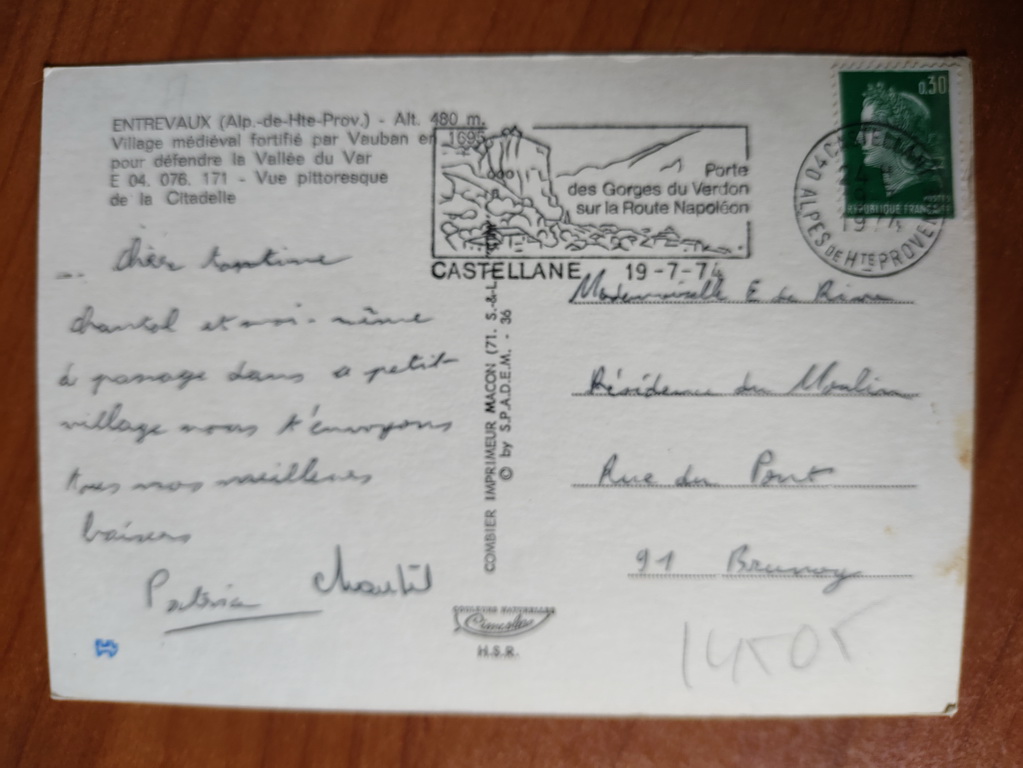 ENTREVAUX (Alp.-de-Hte-Prov.) - Alt. 480 m.
Village médiéval fortifié par Vauban en 1695
pour défendre la Vallée du Var
E 04. 076. 171 - Vue pittoresque
de la Citadelle
Porte
des Gorges du Verdon
sur la Route Napoléon
CASTELLANE 19-7-74
0,30
POSTES
REPUBLIQUE FRANÇAISE
04 CASTELLANE
1974
ALPES DE HTE PROVENCE
Chère tantine
Chantal et moi-même
à passage dans a petit
village nous t'envoyons
tous nos meilleures
baisers
Patricia Chantal
COMBIER IMPRIMEUR MACON (71. S.-&-L.)
© by S.P.A.D.E.M. - 36
Mademoiselle E de
Résidence du Moulin
Rue du Pont
91 Brunoy
COULEURS NATURELLES
Cimcolor
H.S.R.